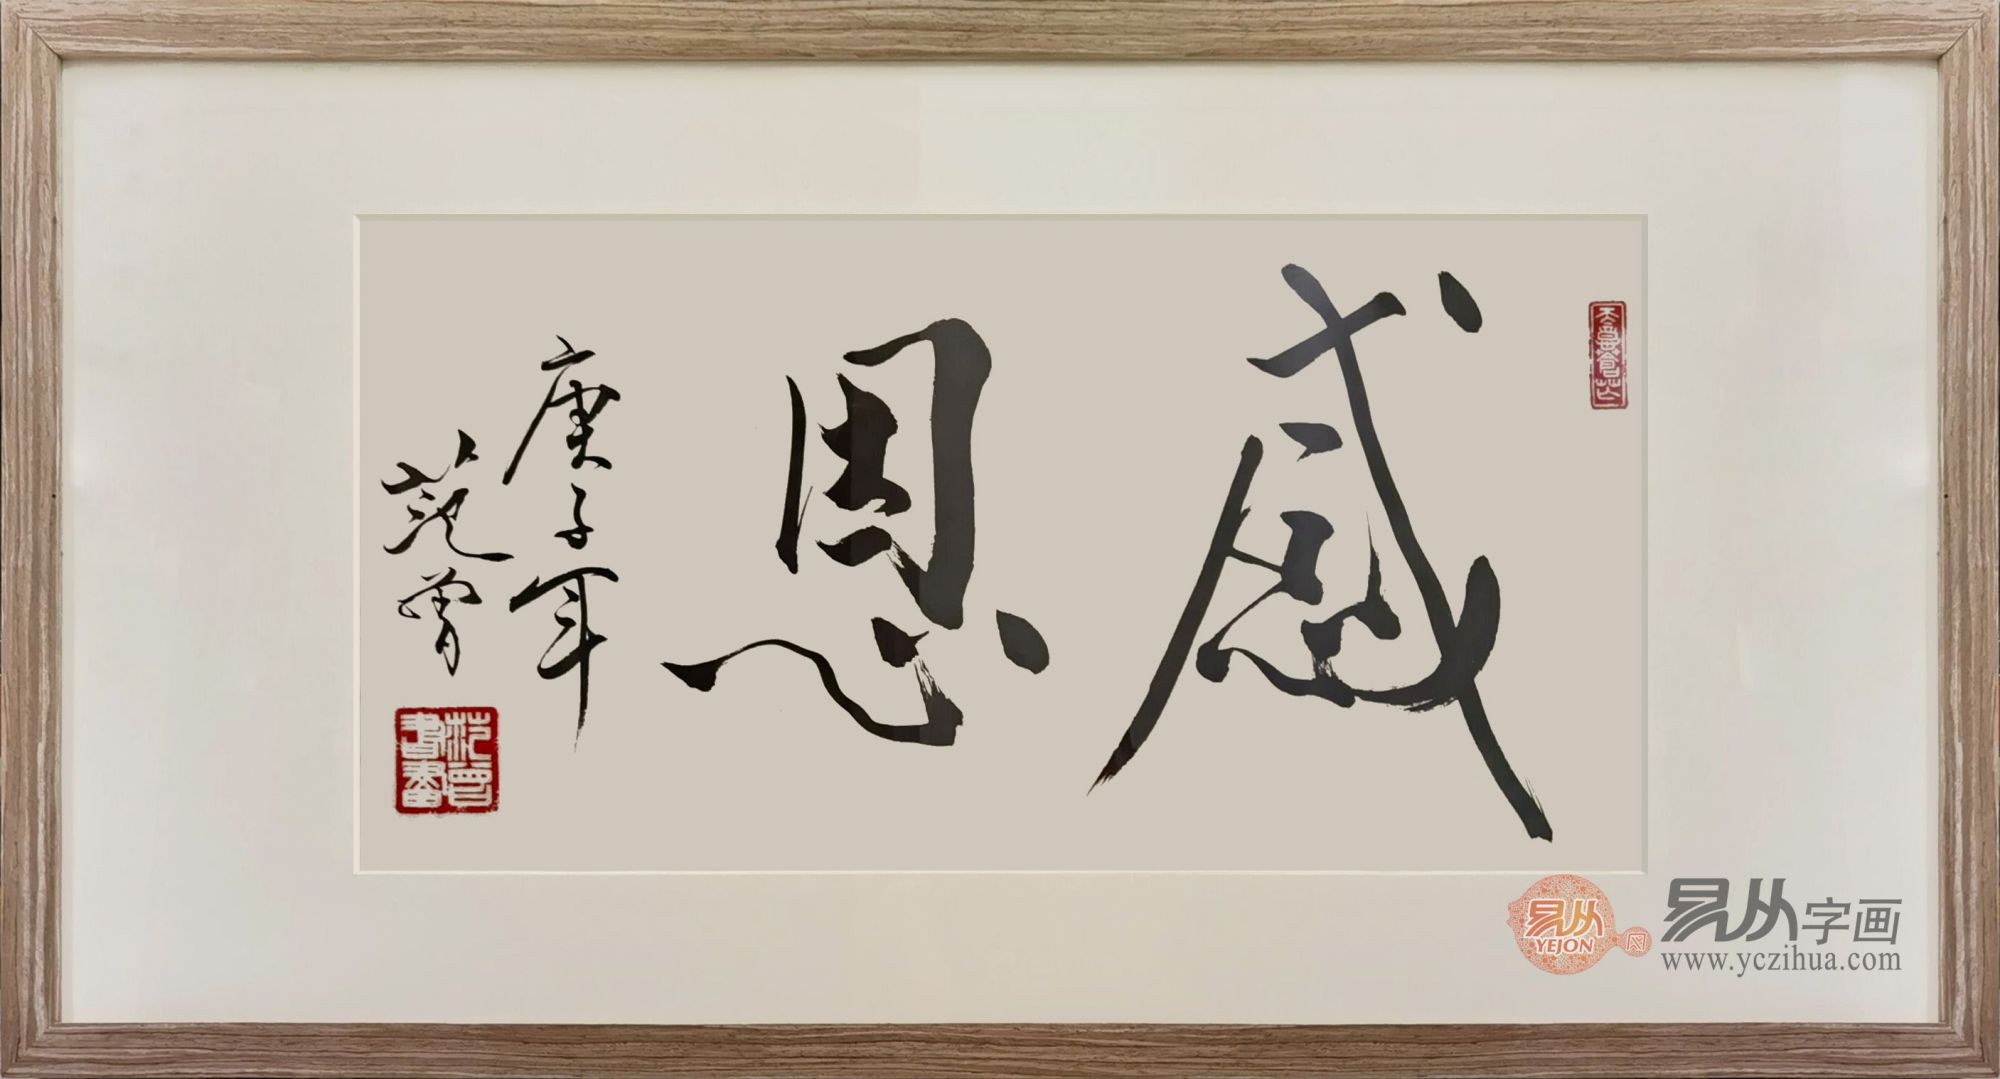 感恩
庚子年
范曾
易从
YEJON
易从字画
www.yczihua.com